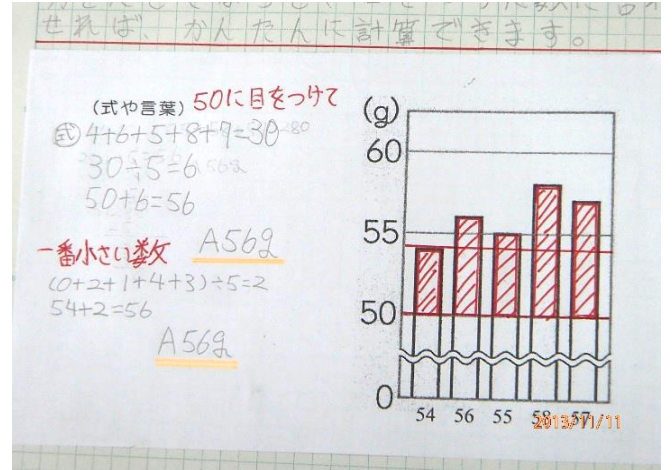 せれば、かんたんに計算できます。
(式や言葉) 50に目をつけて
式 4+6+5+8+7=30
30÷5=6
50+6=56
A56g
一番小さい数
(0+2+1+4+3)÷5=2
54+2=56
A56g
(g)
60
55
50
0
54 56 55 58 57
2013/11/11